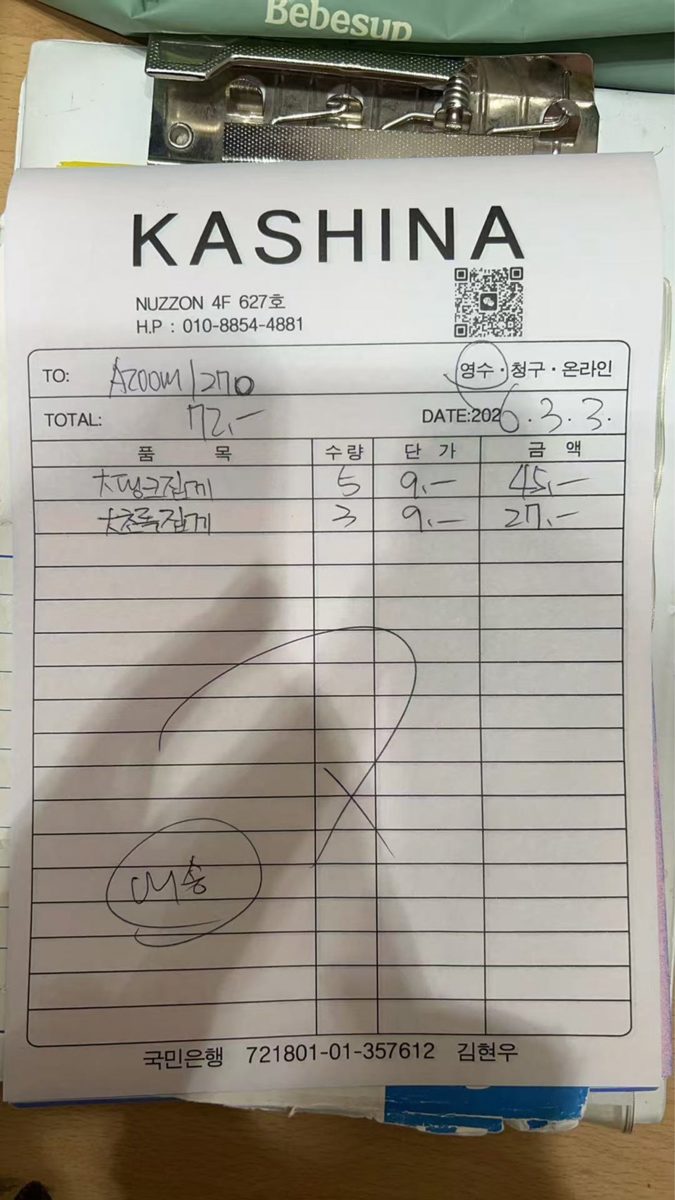 Bebesup
KASHINA
NUZZON 4F 627호
H.P : 010-8854-4881
TO: AZOOM/270 영수 · 청구 · 온라인
TOTAL: 72.- DATE:2026.3.3.
품 목 수량 단 가 금 액
大핑크집게 5 9.- 45.-
大초록집게 3 9.- 27.-
미송
국민은행 721801-01-357612 김현우